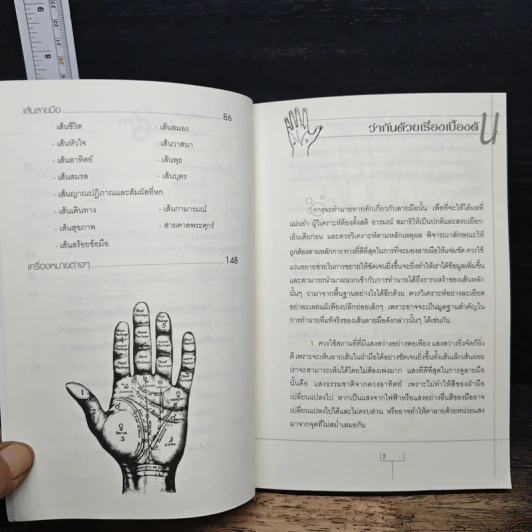 เส้นลายมือ 86
- เส้นชีวิต - เส้นสมอง
- เส้นหัวใจ - เส้นวาสนา
- เส้นอาทิตย์ - เส้นพุธ
- เส้นสมรส - เส้นบุตร
- เส้นญาณปฏิภาณและสัมผัสที่หก
- เส้นเดินทาง - เส้นกามารมณ์
- เส้นสุขภาพ - สายคาดพระศุกร์
- เส้นสร้อยข้อมือ
เครื่องหมายต่างๆ 148
ว่ากันด้วยเรื่องเบื้องต้น
การจะทำนายทายทักเกี่ยวกับลายมือนั้น เพื่อที่จะให้ได้ผลที่
แม่นยำ ผู้วิเคราะห์ต้องตั้งสติ อารมณ์ สมาธิให้เป็นปกติและสงบเยือก-
เย็นเสียก่อน และควรวิเคราะห์ตามหลักเหตุผล พิจารณาลักษณะให้
ถูกต้องตามหลักการทางที่ดีที่สุดในการที่จะมองลายมือให้แจ่มชัด ควรใช้
แว่นขยายช่วยในการขยายให้ชัดเจนยิ่งขึ้นจะยิ่งทำให้เราได้ข้อมูลเพิ่มขึ้น
และสามารถนำมาผนวกเข้ากับการทำนายได้ถึงรากเหง้าของเส้นหลัก
นั้นๆ ว่ามาจากพื้นฐานอย่างไรได้อีกด้วย ควรวิเคราะห์อย่างละเอียด
อย่าละเลยแม้เพียงปลีกย่อยเล็กๆ เพราะอาจจะเป็นมูลฐานสำคัญใน
การทำนายที่แท้จริงของเส้นลายมือดังกล่าวนั้นๆ ได้เช่นกัน
1. ควรใช้สถานที่ที่มีแสงสว่างอย่างพอเพียง แสงสว่างยิ่งจัดก็ยิ่ง
ดี เพราะจะเห็นลายเส้นในฝ่ามือได้อย่างชัดเจนยิ่งขึ้นทั้งเส้นเล็กเส้นฝอย
เราจะสามารถเห็นได้โดยไม่ต้องเพ่งมาก แสงที่ดีที่สุดในการดูลายมือ
นั้นคือ แสงธรรมชาติจากดวงอาทิตย์ เพราะไม่ทำให้สีของฝ่ามือ
เปลี่ยนแปลงไป หากเป็นแสงจากไฟฟ้าหรือแสงอย่างอื่นสีของมืออาจ
เปลี่ยนแปลงไปได้และไม่ครบส่วน หรืออาจทำให้ตาลายด้วยหน่วยแสง
มาจากจุดที่ไม่สม่ำเสมอกัน
7